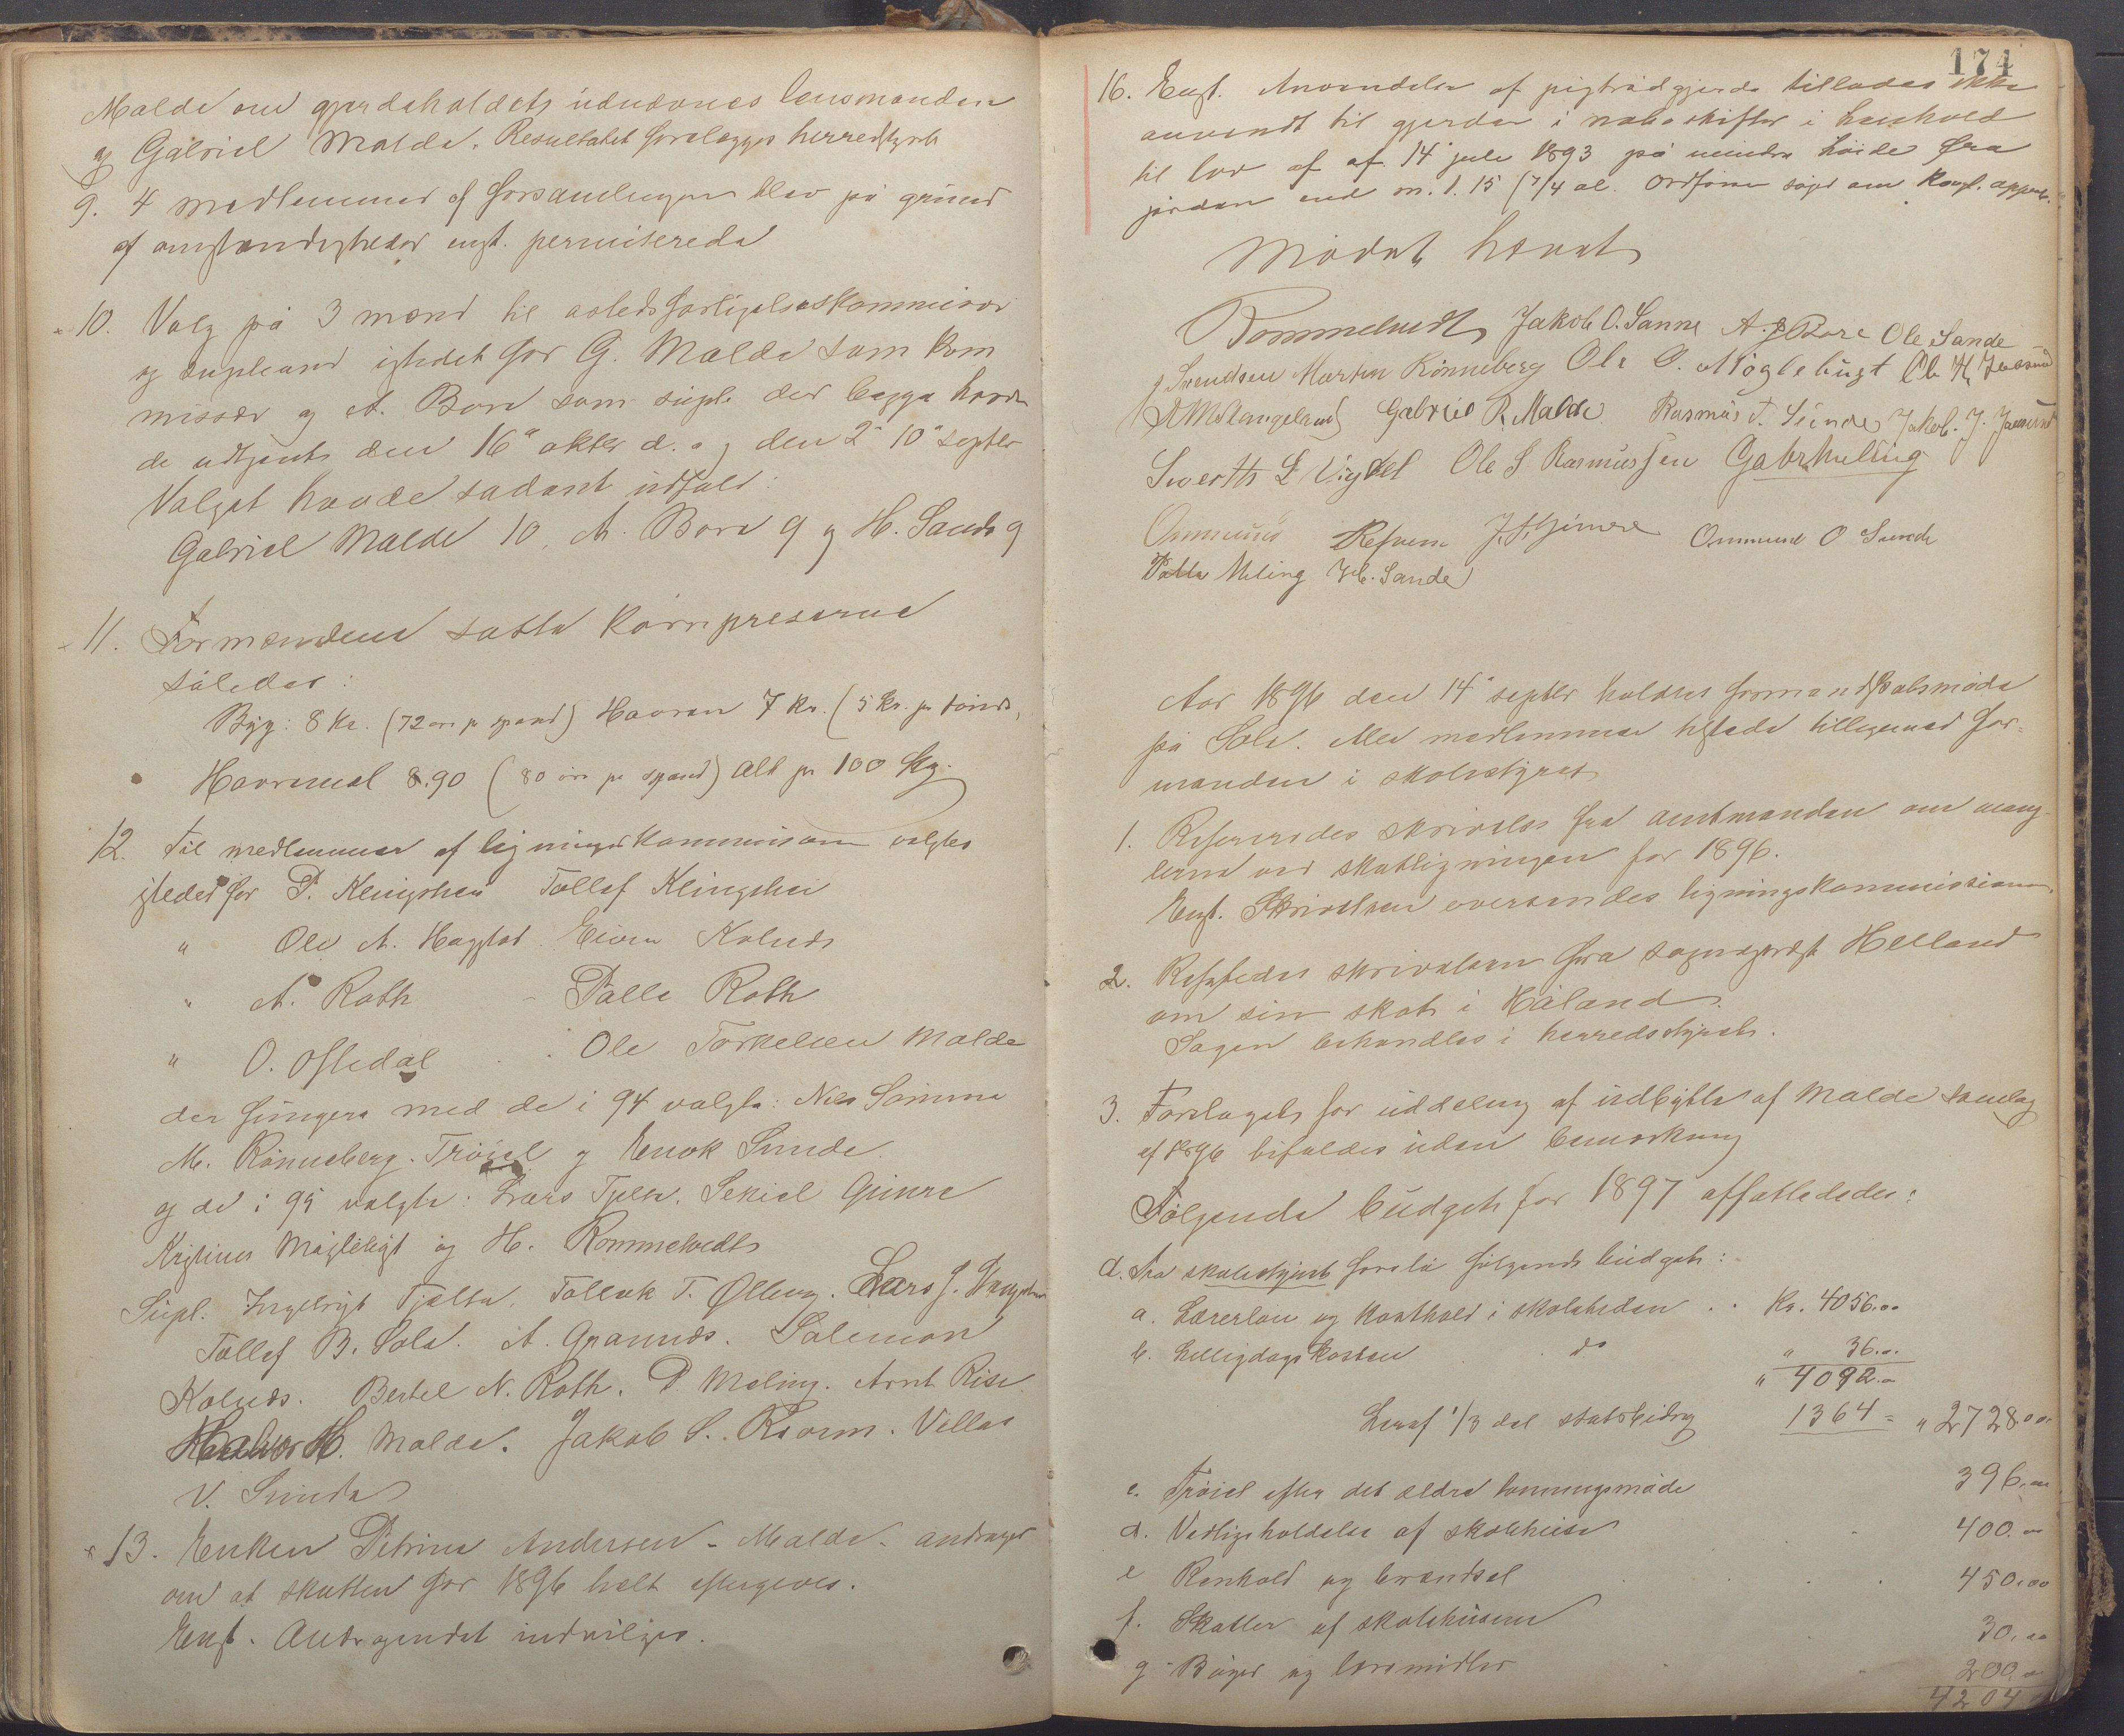 Malde om gjerdeholdets udnævnes lensmanden
og Gabriel Malde. Resultatet forelægges herredstyret
9. 4 medlemmer af forsamlingen blev på grund
af omstændigheder enst. permiterede
10. Valg på 3 mænd til forligelseskommissær
og supleant istedet for G. Malde som kom
missær og A. Bore som suple der begge havde
de udtjent den 16de oktbr d. a. og den 2den 10de septbr
Valget havde sådant udfald:
Gabriel Malde 10, A. Bore 9 og H. Sande 9
11. Formændene satte kornpriserne
således:
Byg: 8 Kr. (72 øre pr spand) Havren 7 Kr. (5 Kr. pr tønde,
Havremel 8.90 (80 øre pr spand) Alt pr 100 Kg.
12. Til medlemmer af ligningskommisionen valgtes
istedet for P. Klingshei Tollef Klingshei
" Ole A. Hagstad Eivin Kolnes
" A. Roth - Palle Roth
" O. Oftedal . . Ole Torkelsen Malde
der fungere med de i 94 valgte: Nils Sømme
M. Rönneberg. Tröiel og Enok Sunde
og de i 95 valgte: Lars Tjelta. Sekiel Gimre
Kristines Møglebugt og H. Rommetvedt
Supl: Ingebrigt Tjelta. Tollak T. Ølberg. Lars J.
Tollef B. Sola. A. Grannes. Salemon
Kolnes. Bertel N. Roth. P. Meling. Arnt Risa
H. Malde. Jakob S. Ræge. Villas
V. Sunde
13. Enken Petrine Andersen - Malde - andrager
om at skatten for 1896 helt eftergives.
Enst. Andragendet indvilges.
174
16. Enst. Anvendelse af pigtrådgjerde tillades ikke
anvendt til gjerder i naboskifter i henhold
til lov af af 14de juli 1893 på mindre høide fra
jorden end m. 1.15 (7/4 al. Ordføren søger om Kongl. approb.
Mödet hævet
Rommetvedt Jakob O. Sanne A. J. Bore Ole Sande
J Svendsen Martin Rönneberg Ole O. Möglebugt Ole H. Jaasund
Gabriel P. Malde Rasmus T. Sunde Jakob. J. Jaasund
Sverth L Vigdel Ole S Rasmussen Gabr Meling
Ommund Refsnes J. A. Gimre Ommund O Sunde
Palle Meling H. Sande
Aar 1896 den 14de septbr holdtes formandskabsmøde
på Sole. Alle medlemmer tilstede tilligemed for-
manden i skolestyret
1. Refereredes skrivelse fra amtmanden om mang-
lerne ved skatligningen for 1896.
Enst. Skrivelsen oversendes ligningskommissionen.
2. skrivelsen fra sogneprest Helland
om sin skat i Håland.
Sagen behandles i herredsstyret.
3. Forslaget for uddeling af udbytte af Malde samlag
af 1896 bifaldes uden bemærkning
Følgende budget for 1897 affattedes:
d. Fra skolestyret forelå følgende budget:
a. Lærerløn og kosthold i skoletiden . . Kr. 4056.00
b. helligdagskosten . do " 36.00
" 4092.00
heraf 1/3 del statsbidrag 1364 = " 2728.00
c. Tröiel efter det ældre lønningsmåde 396.00
d. Vedligeholdelse af skolehuse . 400.00
e Renhold og brændsel . . . 450.00
f. Skatter af skolehusene . 30.00
g - Bøger og læremidler . . 200.00
4204